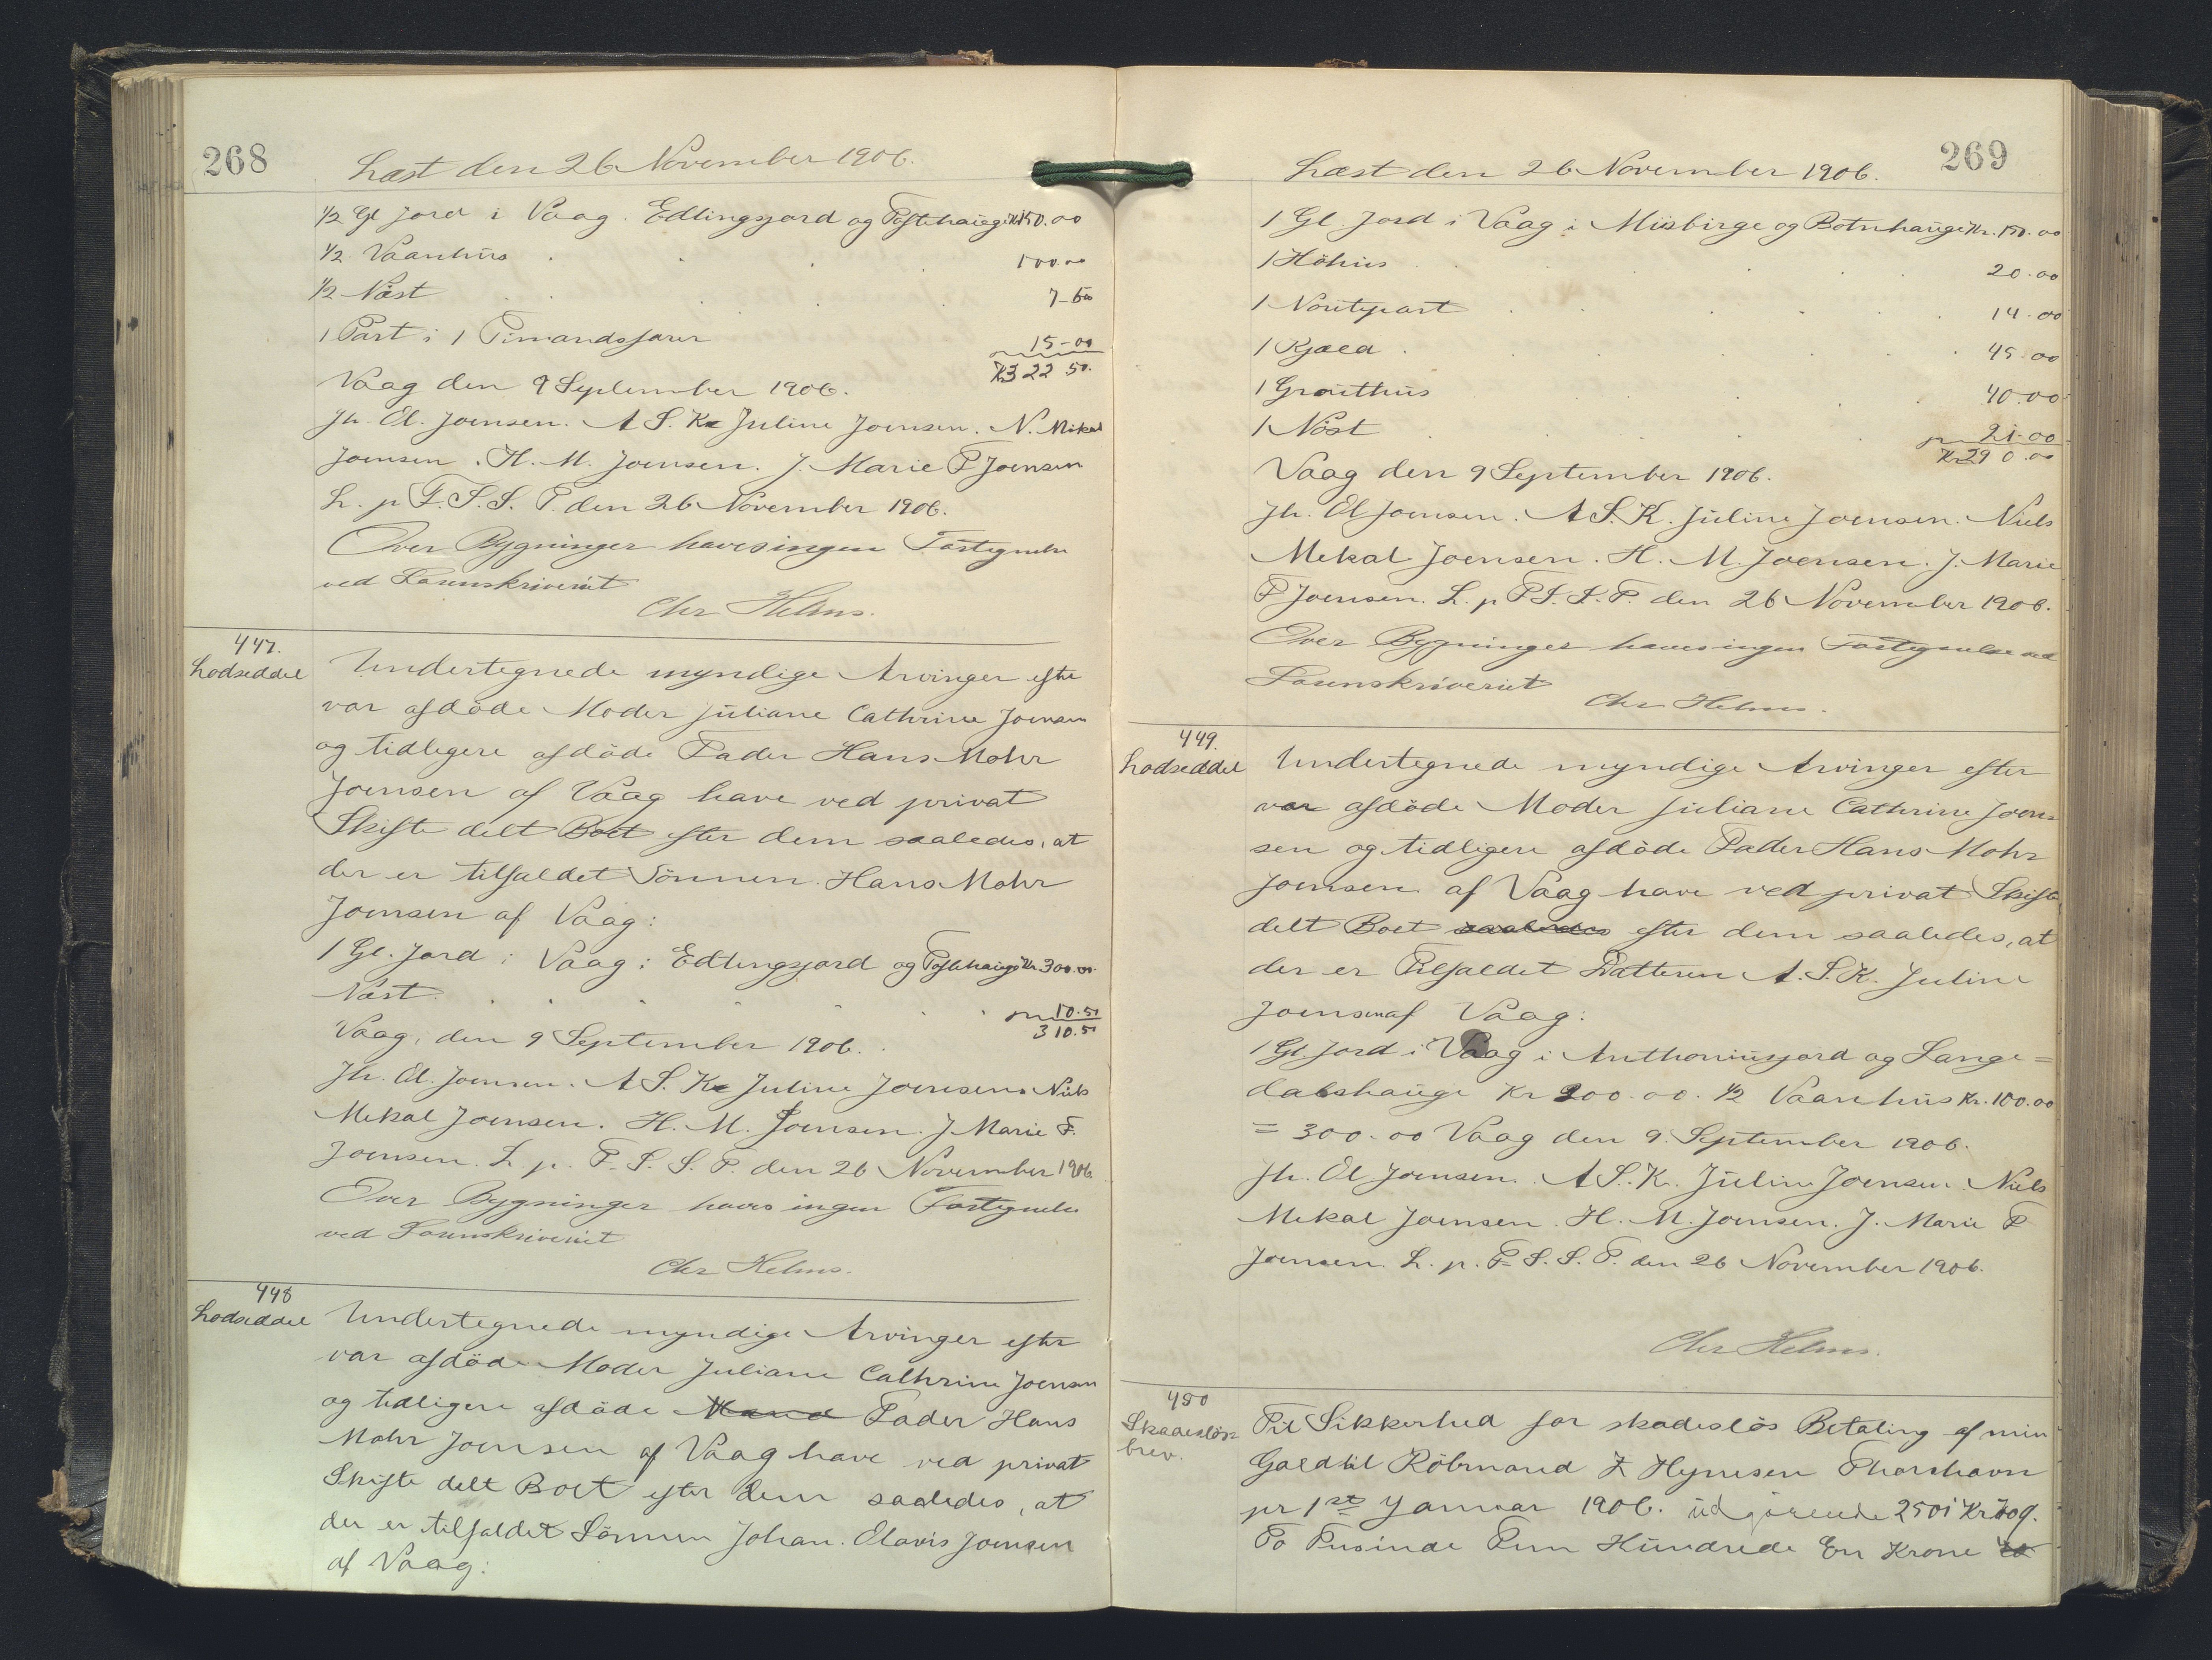 268
Læst den 26 November 1906.
1/2 Gl Jord i Vaag. Edlingsjord og Toftehauge Kr 150.00
1/2 Vaanhus . . . . 100.00
1/2 Nøst . . . . 7-50
1 Part i 1 Timandsfarer 15-00
Kr 322 50.
Vaag den 9 September 1906.
Jh. El. Joensen. A S. K Juline Joensen. N. Mikal
Joensen. H. M. Joensen. J. Marie F Joensen
L. p F. S. S. T. den 26 November 1906.
Over Bygninger haves ingen Fortegnelse
ved Sorenskriveriet
Chr Helms.
447.
Lodseddel
Undertegnede myndige Arvinger efter
vor afdøde Moder Juliane Cathrine Joensen
og tidligere afdøde Fader Hans Mohr
Joensen af Vaag have ved privat
Skifte delt Boet efter dem saaledes, at
der er tilfaldet Sønnen Hans Mohr
Joensen af Vaag:
1 Gl. Jord i Vaag i Edlingsjord og Toftehauge Kr. 300.00
Nøst . . . . . 10.50
310.50
Vaag, den 9 September 1906.
Jh. El. Joensen. A S. K Juline Joensen Niels
Mekal Joensen. H. M. Joensen. J Marie F.
Joensen. L p. F. S. S. T. den 26 November 1906
Over Bygninger haves ingen Fortegnelse
ved Sorenskriveriet
Chr Helms.
448
Lodseddel
Undertegnede myndige Arvinger efter
vor afdøde Moder Juliane Cathrine Joensen
og tidligere afdøde Mand Fader Hans
Mohr Joensen af Vaag have ved privat
Skifte delt Boet efter dem saaledes, at
der er tilfaldet Sønnen Johan. Elavis Joensen
af Vaag:
269
Læst den 26 November 1906.
1 Gl. Jord i Vaag i Misbirge og Botnhauge Kr. 150.00
1 Höhus . . . . 20.00
1 Noutepart . . . . 14.00
1 Kjæld . . . . 45.00
1 Grouthus . . . . 40.00
1 Nöst . . . . 21.00
Kr 290.00
Vaag den 9 September 1906.
Jh. El Joensen. A S. K. Juline Joensen. Niels
Mekal Joensen. H. M. Joensen. J. Marie
F Joensen. L. p F. S. S. T. den 26 November 1906.
Over Bygninger haves ingen Fortegnelse ved
Sorenskriveriet
Chr Helms.
449.
Lodseddel
Undertegnede myndige Arvinger efter
vor afdøde Moder Juliane Cathrine Joen=
sen og tidligere afdøde Fader Hans Mohr
Joensen af Vaag have ved privat Skifte
delt Boet saaledes efter dem saaledes, at
der er Tilfaldet Datteren A. S. K. Juline
Joensen af Vaag:
1 Gl Jord i Vaag i Anthoniusjord og Lange=
dalshauge Kr 200.00. 1/2 Vaanhus Kr. 100.00
= 300.00 Vaag den 9. September 1906.
Jh. El Joensen. A S. K. Juline Joensen. Niels
Mekal Joensen. H. M. Joensen. J. Marie F
Joensen. L. p. F. S. S. T. den 26 November 1906.
Chr Helms.
450
Skadesløs=
brev.
Til Sikkerhed for skadesløs Betaling af min
Gæld til Köbmand Z Heynesen Thorshavn
pr 1st Januar 1906. udgørende 2501 Kr
To Tusinde Fem Hundrede En Krone